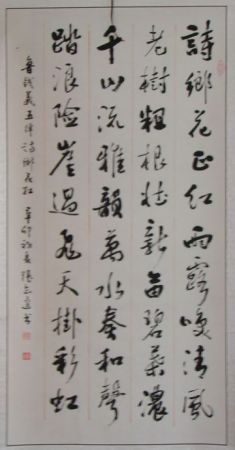 詩鄉花正紅雨露喚清風
老樹粗根壯新苗碧葉濃
千山流雅韻萬水奏和聲
踏浪险崖過飛天掛彩虹
五律诗鄉花红 辛卯初夏 書